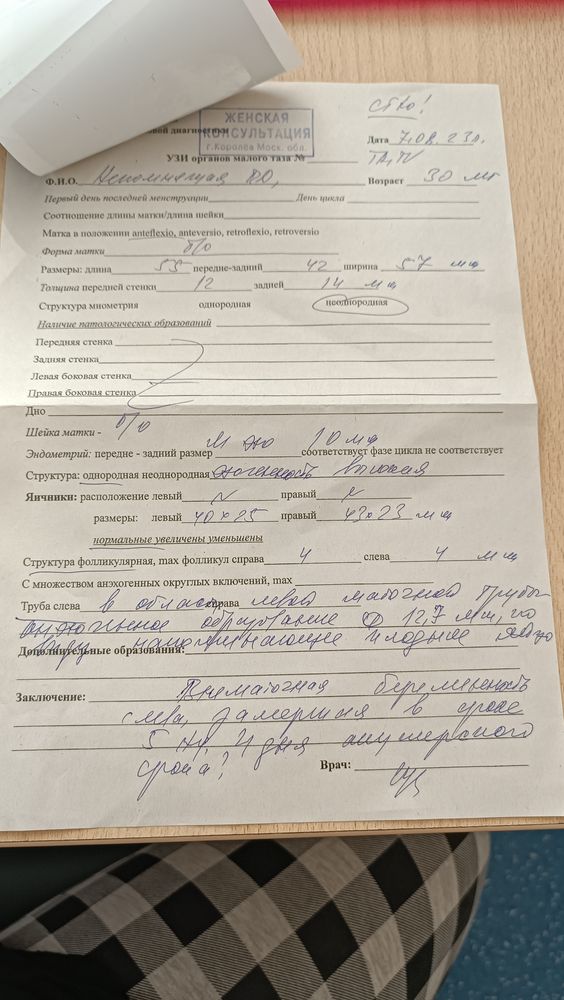 CITO!
ЖЕНСКАЯ
КОНСУЛЬТАЦИЯ
г.Королёв Моск. обл.
овой диагностики
Дата 7.08.23г.
УЗИ органов малого таза №
ТА, TV
Ф.И.О. Возраст 30 лет
Первый день последней менструации День цикла
Соотношение длины матки/длина шейки
Матка в положении anteflexio, anteversio, retroflexio, retroversio
Форма матки б/о
Размеры: длина 55 передне-задний 42 ширина 57 мм
Толщина передней стенки 12 задней 14 мм
Структура миометрия однородная неоднородная
Наличие патологических образований
Передняя стенка
Задняя стенка
Левая боковая стенка
Правая боковая стенка
Дно
Шейка матки - б/о
Эндометрий: передне - задний размер М эхо 10 мм соответствует фазе цикла не соответствует
Структура: однородная неоднородная эхогенность высокая
Яичники: расположение левый N правый N
размеры: левый 40х25 правый 43х23 мм
нормальные увеличены уменьшены
Структура фолликулярная, max фолликул справа 4 слева 4 мм
С множеством анэхогенных округлых включений, max
Труба слева справа в области левой маточной трубы
анэхогенное образование 12,7 мм, по
виду напоминающее плодное яйцо
Дополнительные образования:
Заключение: Внематочная беременность
слева, замершая в сроке
5 нед. 4 дня акушерского
срока?
Врач: